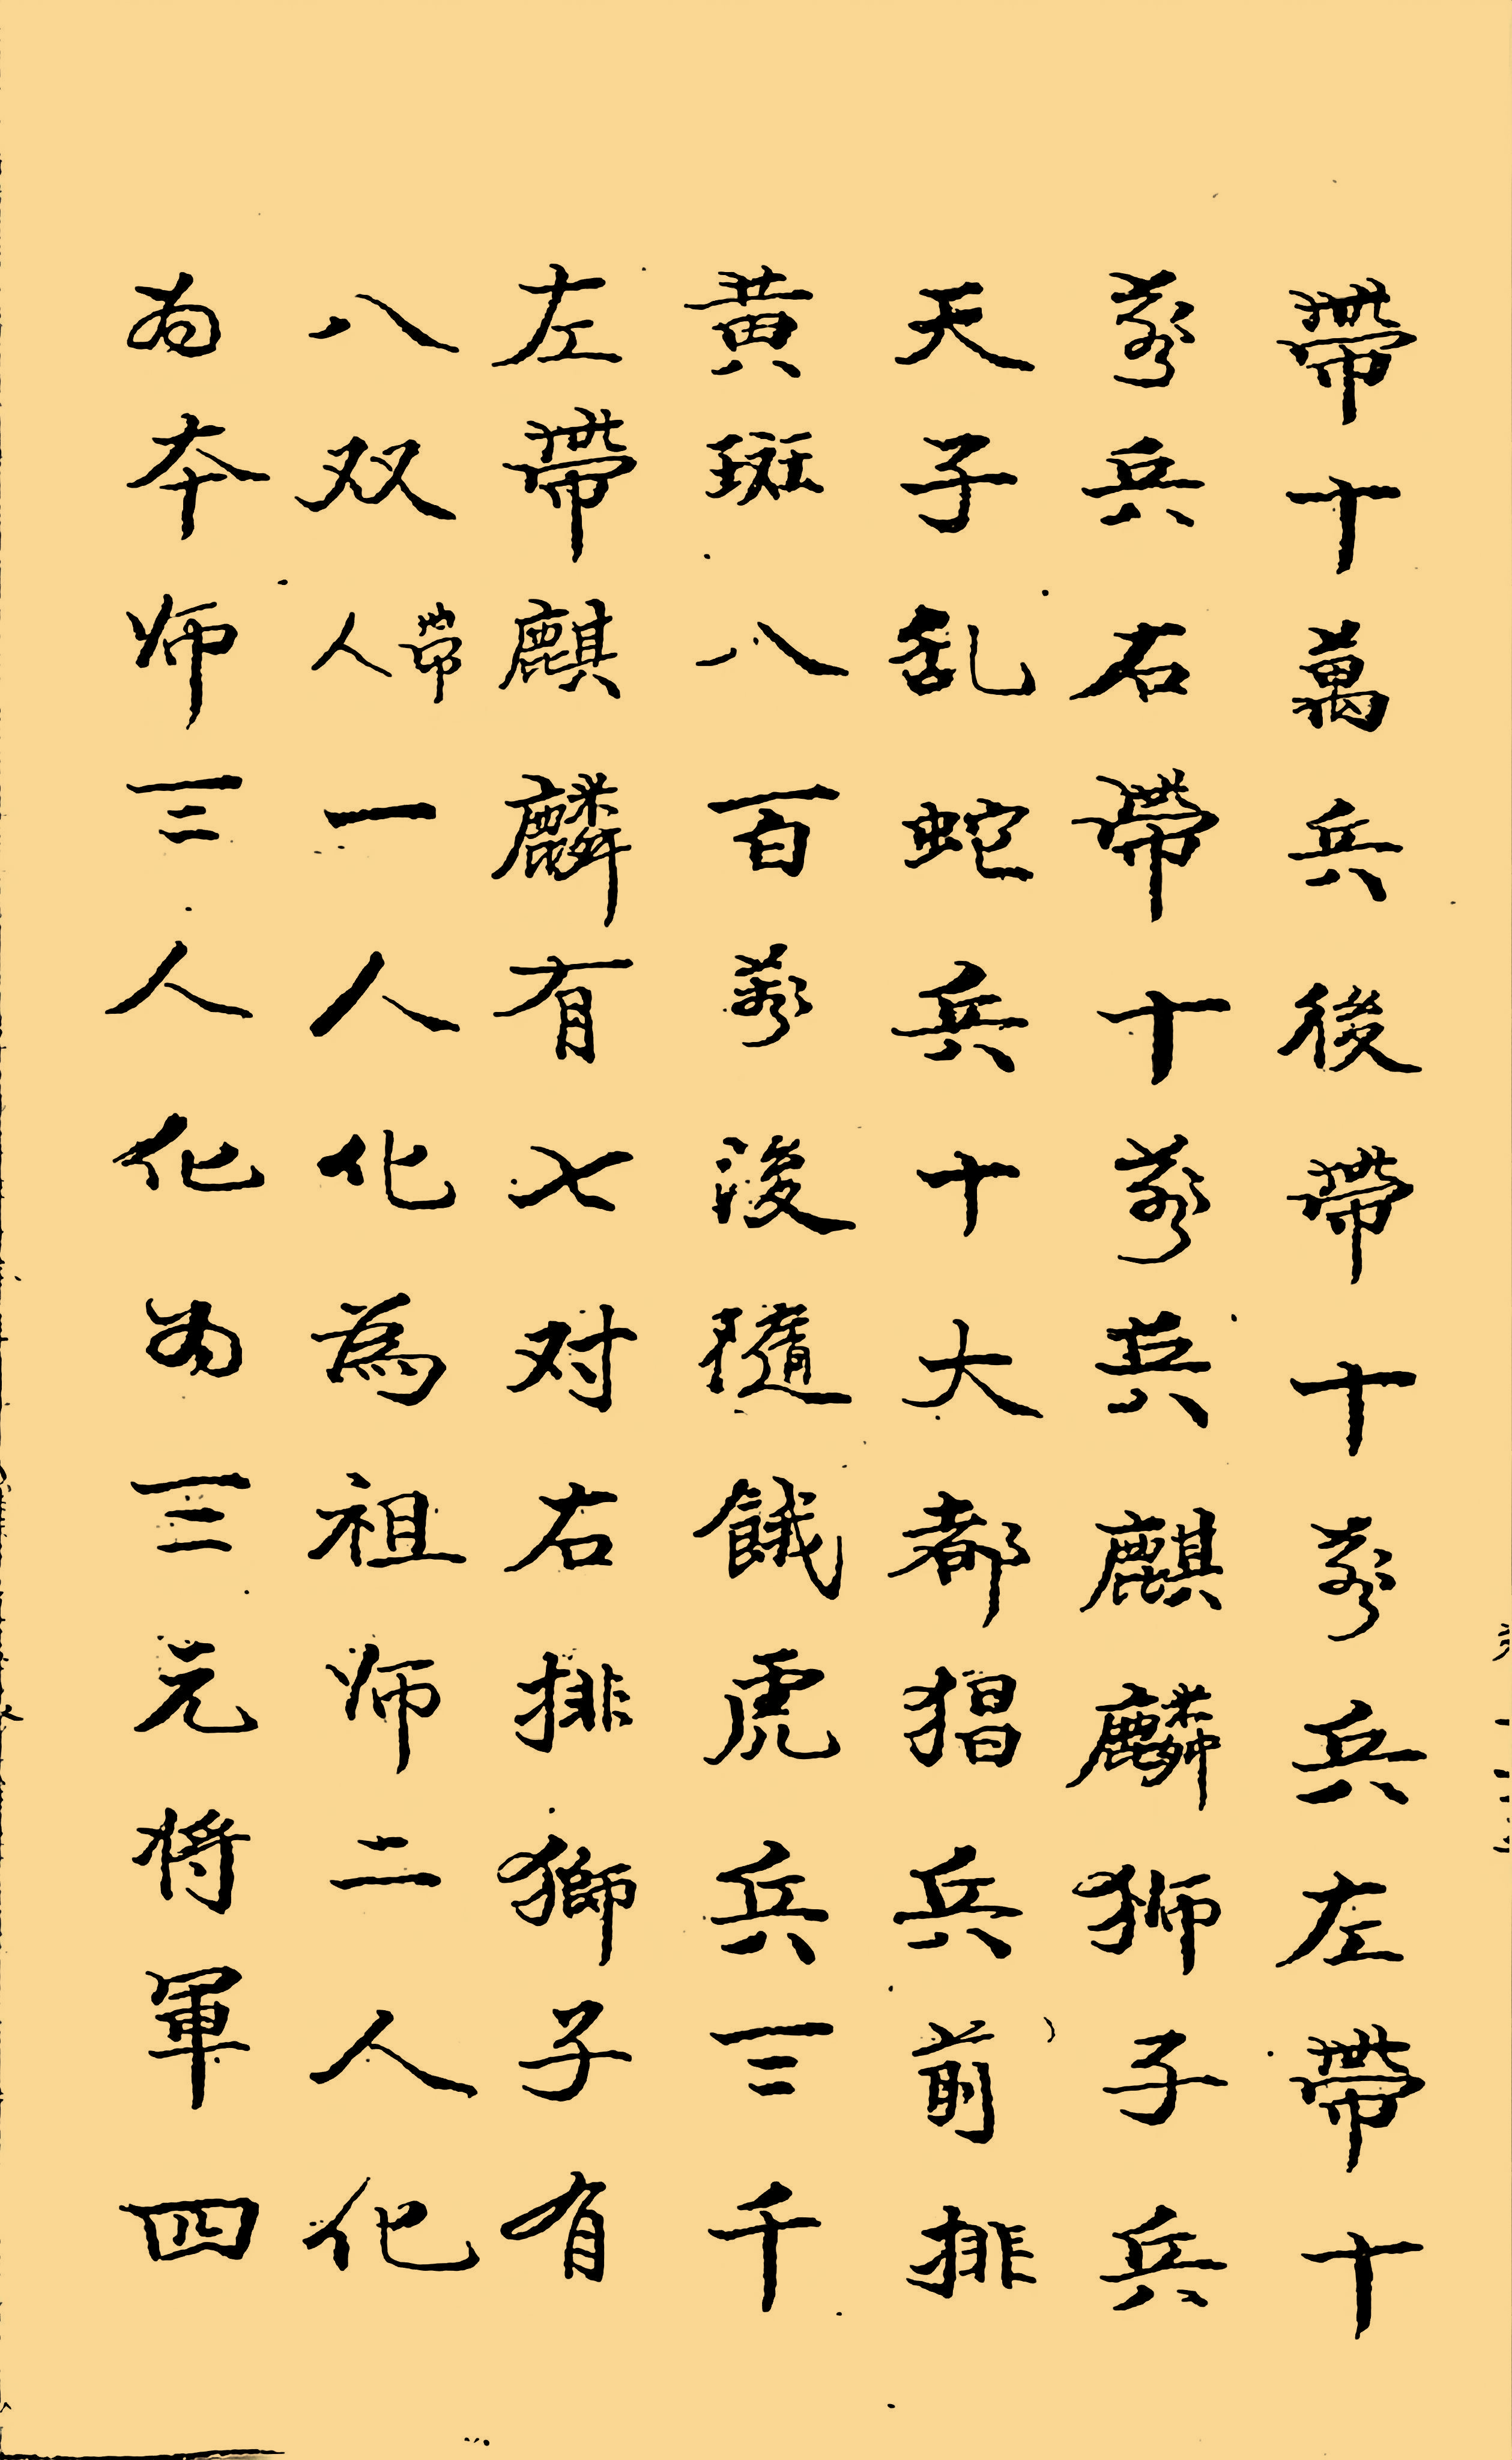 帶十萬兵後帶十萬兵左帶十
萬兵右帶十萬兵麒麟狮子兵
天子乱蛇兵十大都猖兵前排
黃斑八百萬後隨餓虎兵三千
左帶麒麟有七对右排獅子有
八双帶人一人化為祖师二人化
为本师三人化为三元将軍四